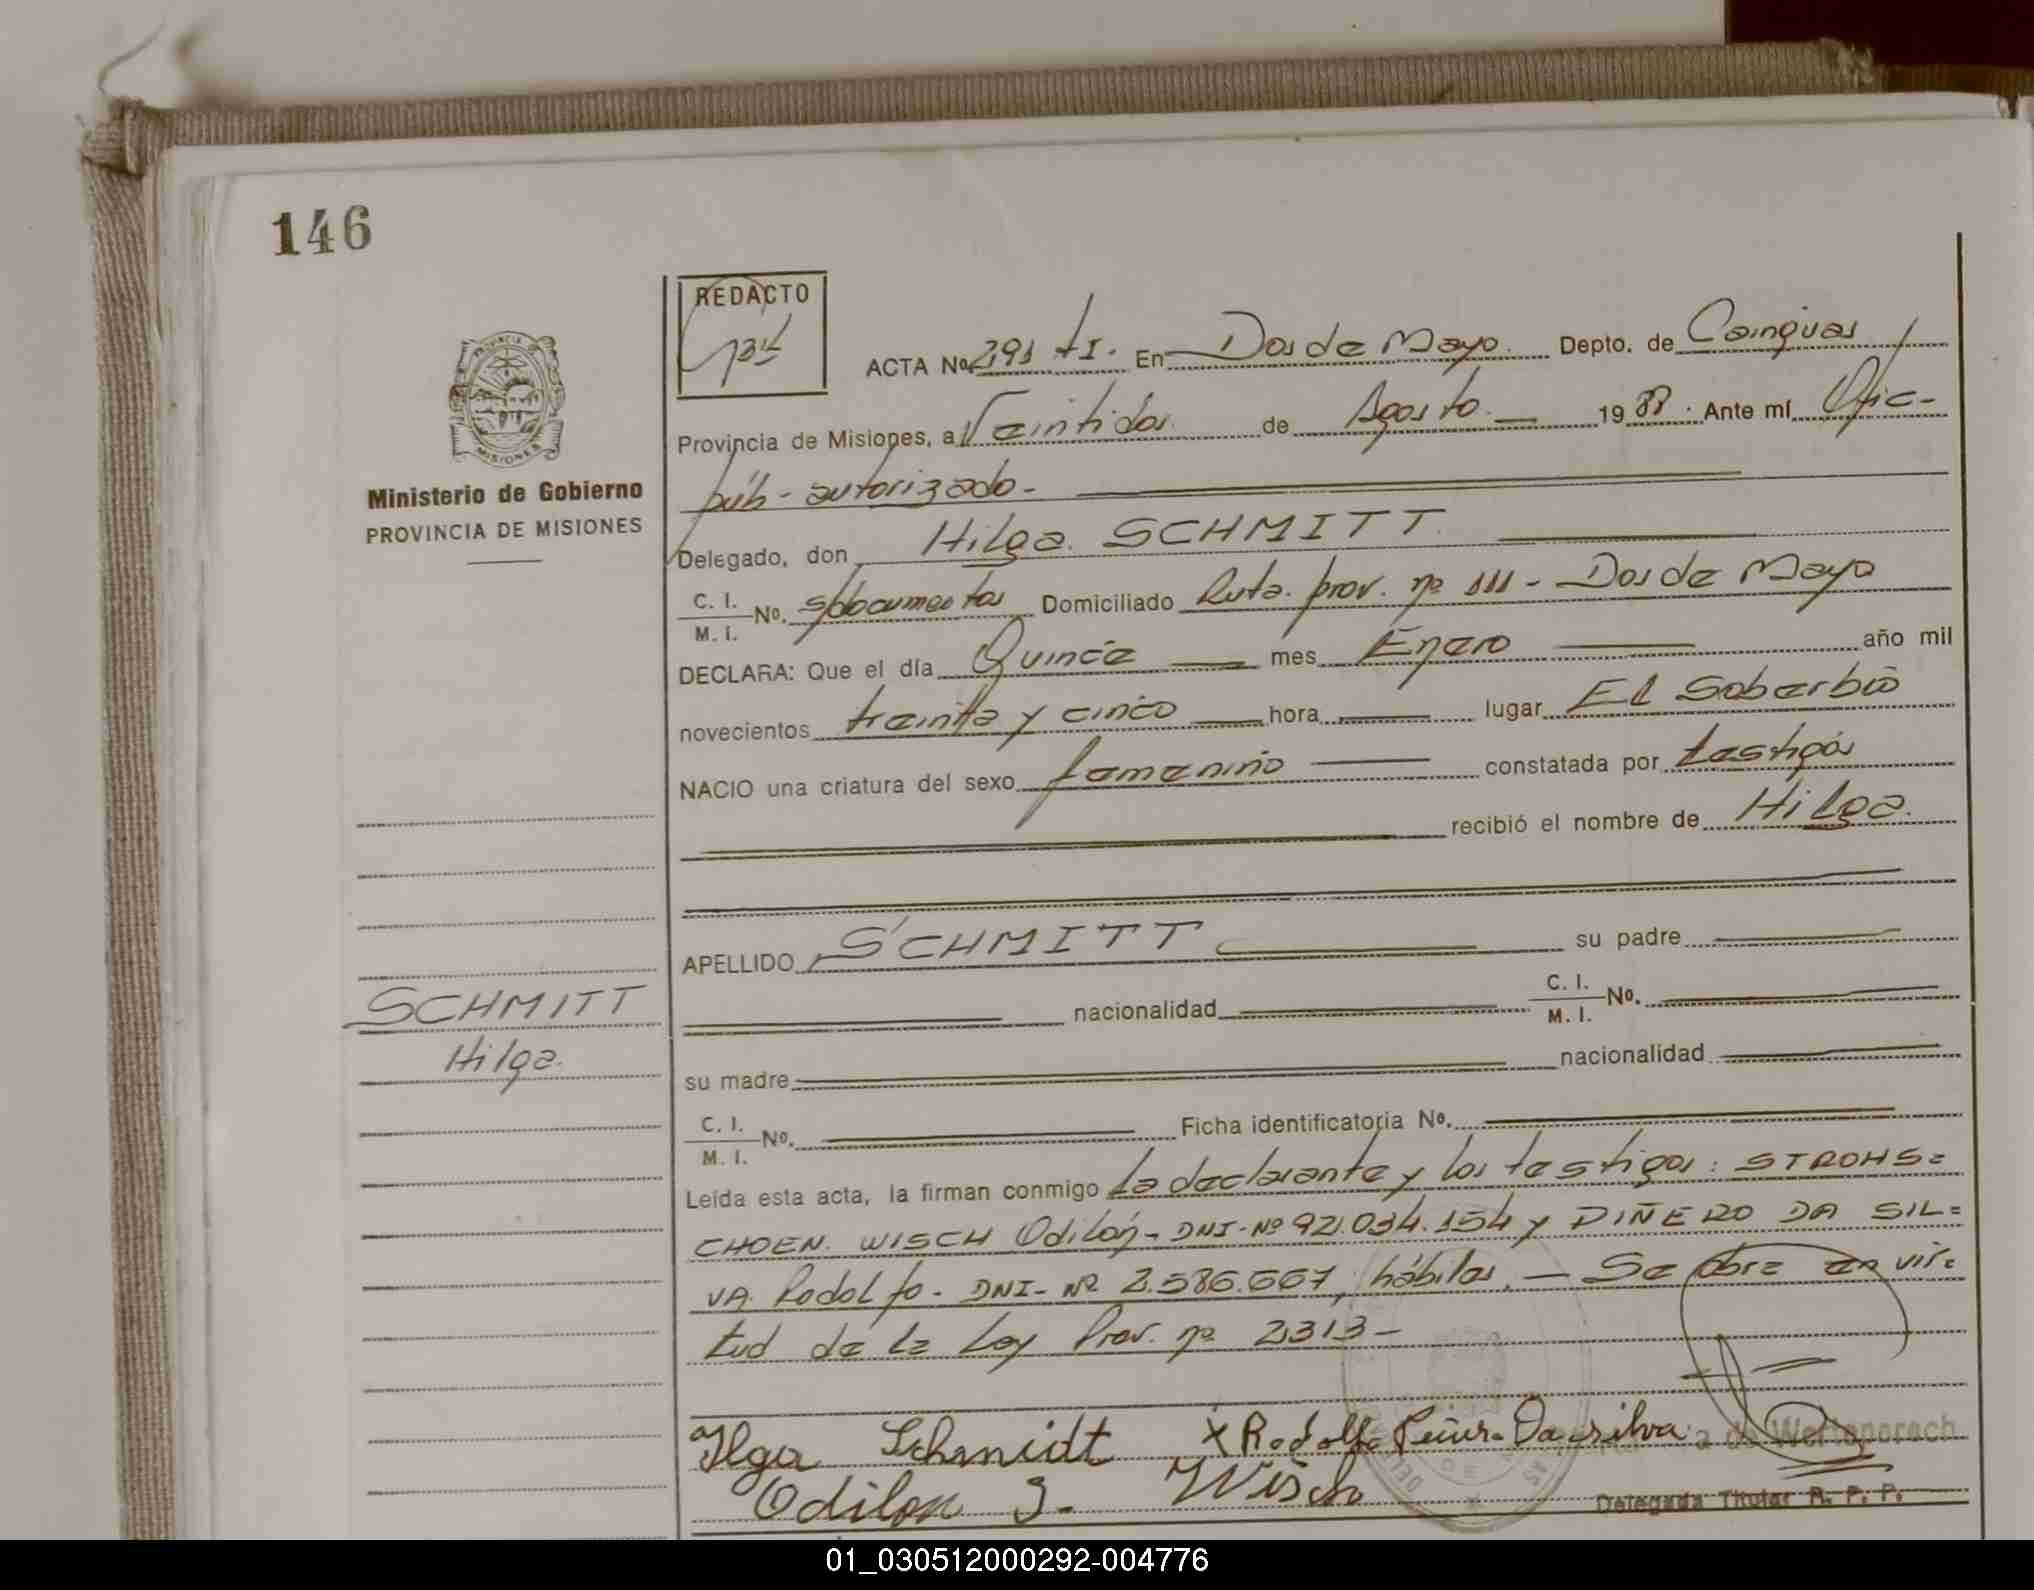 146
REDACTO
PROVINCIA DE
MISIONES
Ministerio de Gobierno
PROVINCIA DE MISIONES
ACTA No. 291 tI. En Dos de Mayo. Depto. de Cainguas
Provincia de Misiones, a Veintidos de Agosto 1988. Ante mí Ofic-
púb- autorizado-
Delegado, don Hilga SCHMITT
C. I. M. I. No. s/documentos Domiciliado Ruta. prov. nº 111 - Dos de Mayo
DECLARA: Que el día Quince mes Enero año mil
novecientos treinta y cinco hora lugar El Soberbio
NACIO una criatura del sexo femenino constatada por testigos
recibió el nombre de Hilga.
APELLIDO SCHMITT su padre
SCHMITT
Hilga.
nacionalidad C. I. M. I. No.
su madre nacionalidad
C. I. M. I. No. Ficha identificatoria No.
Leída esta acta, la firman conmigo La declarante y los testigos: STROHS=
CHOEN. WISCH Odilon- DNI-Nº 92.034.154 y PIÑERO DA SIL=
VA Rodolfo- DNI- Nº 2.586.667, hábiles, - Se labra en vir=
tud de la Ley Prov. nº 2313-
Ilga Schmidt X Rodolfo Da silva
Odilon J. Wisch
Delegada Titular R. P. P.
01_030512000292-004776